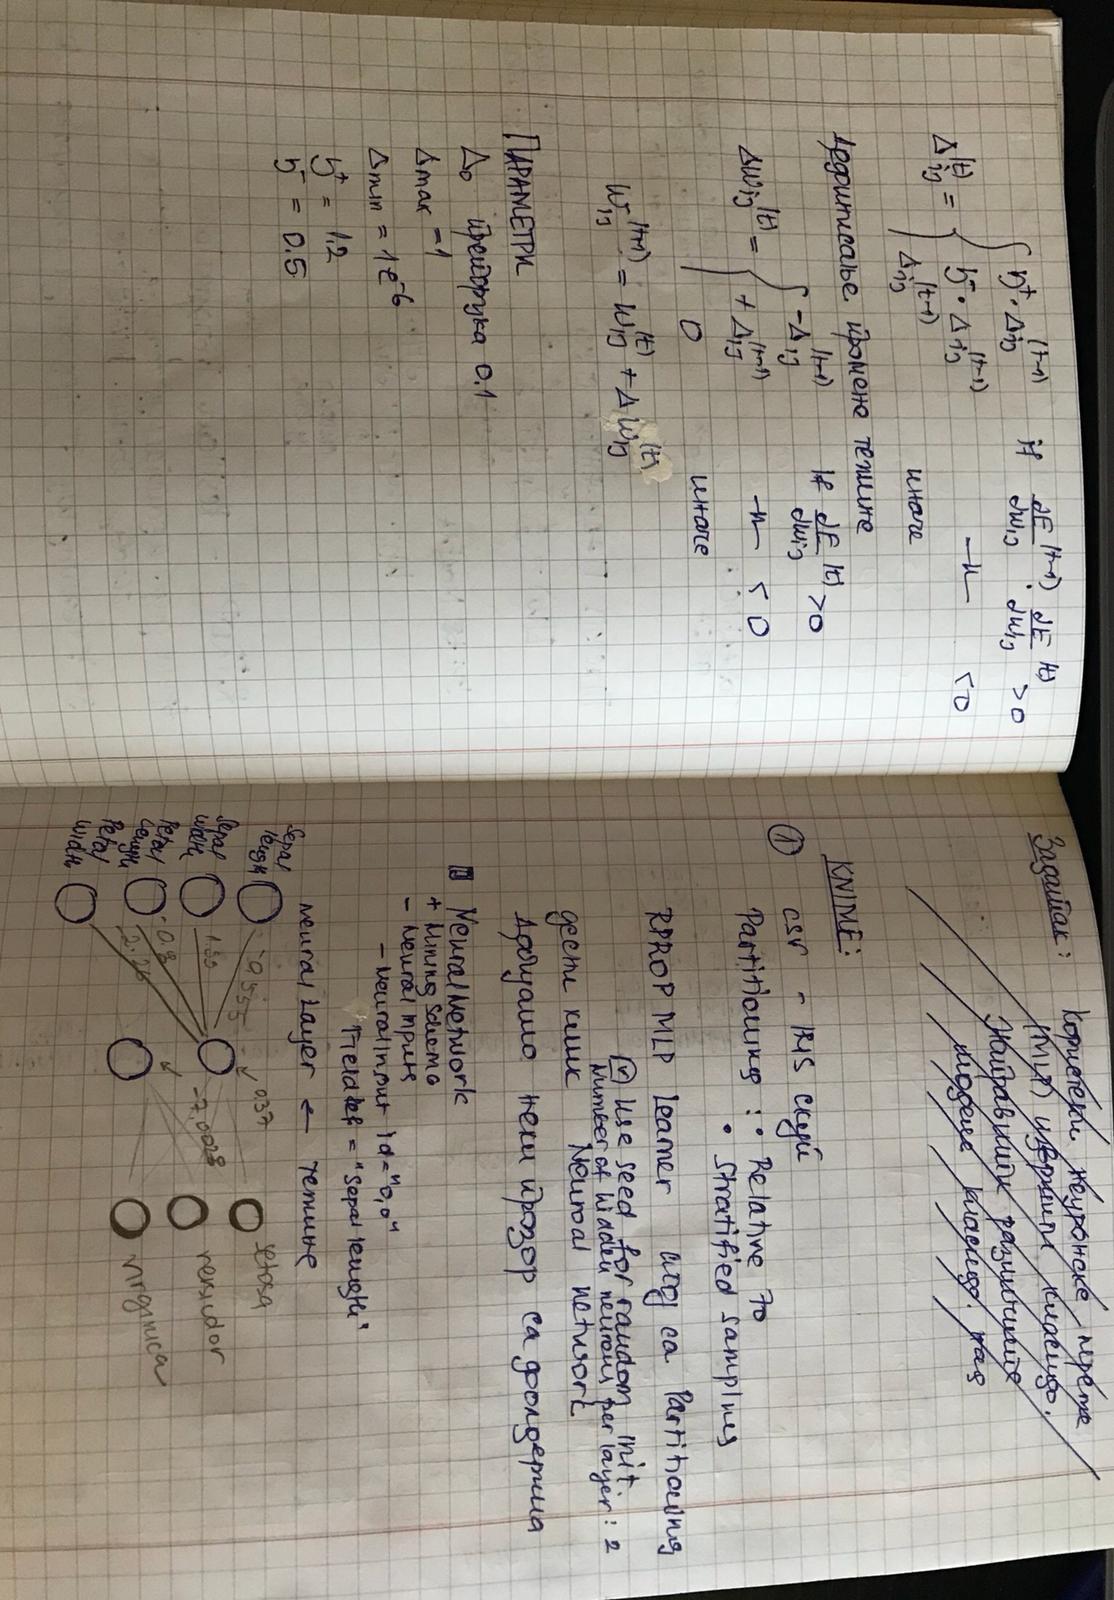 Δij^(t) = { η⁺ · Δij^(t-1) if dE/dwij^(t-1) · dE/dwij^(t) > 0
η⁻ · Δij^(t-1) —||— < 0
Δij^(t-1) иначе
промене тежине
Δwij^(t) = { -Δij^(t-1) if dE/dwij^(t) > 0
+Δij^(t-1) —||— < 0
0 иначе
wij^(t+1) = wij^(t) + Δwij^(t)
ПАРАМЕТРИ
Δ0 препорука 0.1
Δmax = 1
Δmin = 1e^-6
η⁺ = 1.2
η⁻ = 0.5
Задатак: неуронске мреже
(MLP) извршити класиф.
Направити
модел класиф. над
KNIME:
① csv - IRIS скуп
Partitioning : • Relative 70
• Stratified sampling
RPROP MLP Learner са Partitioning
[v] Use seed for random init.
Number of hidden neurons per layer: 2
десни клик Neural network
добијамо неки прозор са фолдерима
Neural Network
+ Mining Schema
- Neural Inputs
- NeuralInput id="0,0"
Field = "sepal length"
Neural Layer ← тежине
Sepal length
Sepal width
Petal length
Petal width
-0,555
1.35
-0.8
2.25
0.37
-7,0028
setosa
versicolor
virginica